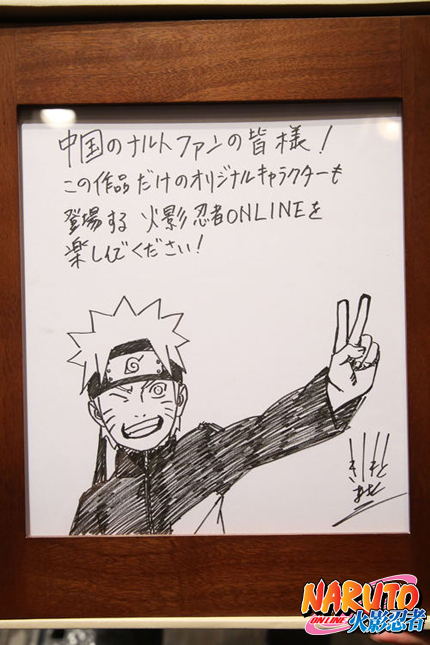 中国のナルトファンの皆様！
この作品だけのオリジナルキャラクターも
登場する 火影忍者ONLINEを
楽しんでください！
NARUTO
ONLINE 火影忍者